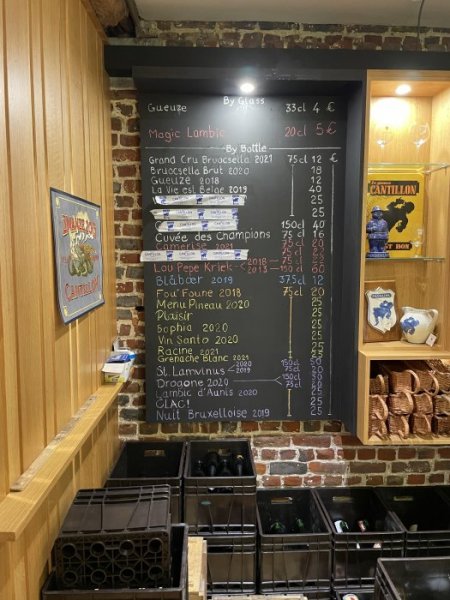 By Glass
Gueuze 33cl 4 €
Magic Lambic 20cl 5 €
By Bottle
Grand Cru Bruocsella 2021 75cl 12 €
Bruocsella Brut 2020 18
Gueuze 2018 12
La Vie est Belge 2019 40
25
25
150cl 40
Cuvée des Champions 75cl 16
Camerise 2021 75cl 20
Lou Pepe Kriek 2018 75cl
2013 150cl 60
Blåbær 2019 37.5cl 12
Fou' Foune 2018 75cl 20
Menu Pineau 2020 25
Plaisir 25
Sophia 2020 25
Vin Santo 2020 25
Racine 2021 25
Grenache Blanc 2021 25
St. Lamvinus 2020 150cl 50
2019 75cl
Drogone 2020 150cl
75cl 25
Lambic d'Aunis 2020 25
CLAC! 25
Nuit Bruxelloise 2019 25
CANTILLON
EST BON
CANTILLON